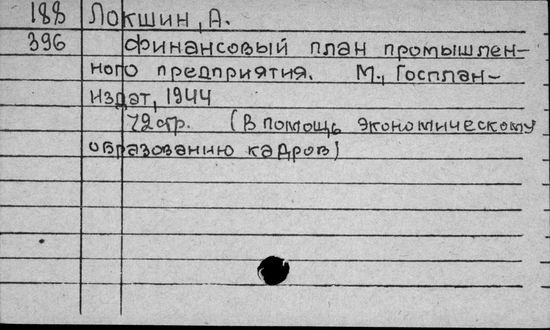 188 Локшин, А.
396 Финансовый план промышлен-
ного предприятия. М., Госплан-
издат, 1944
72 стр. (В помощь экономическому
образованию кадров)